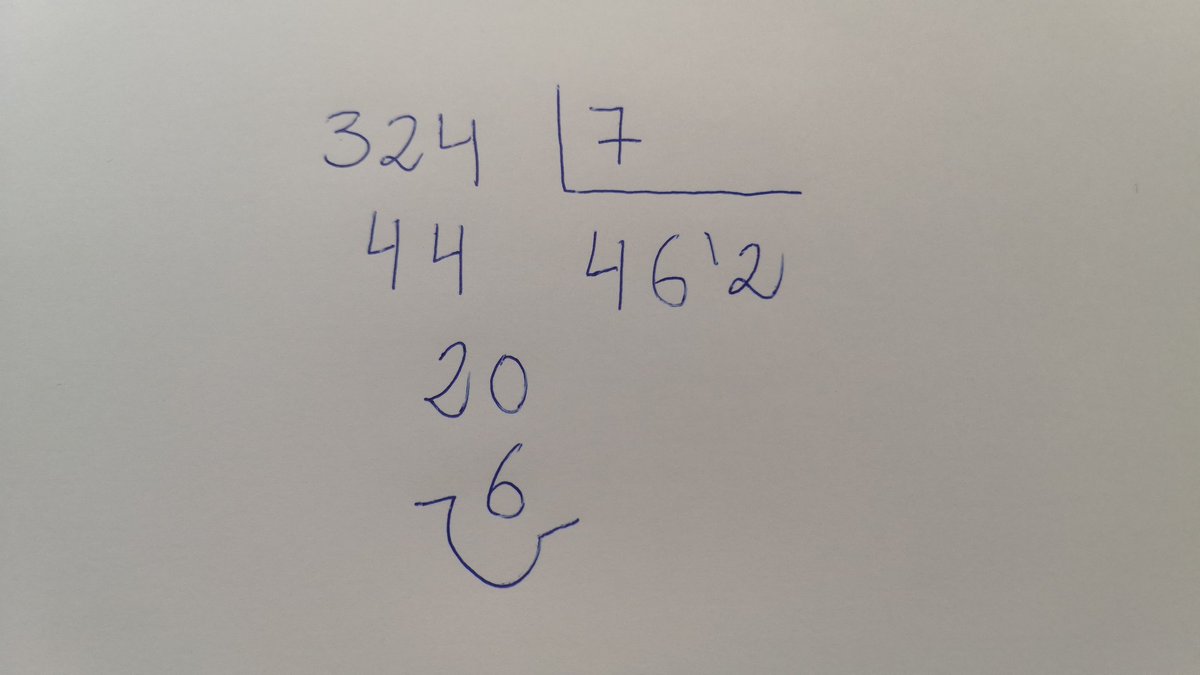 324 7
44 46'2
20
6